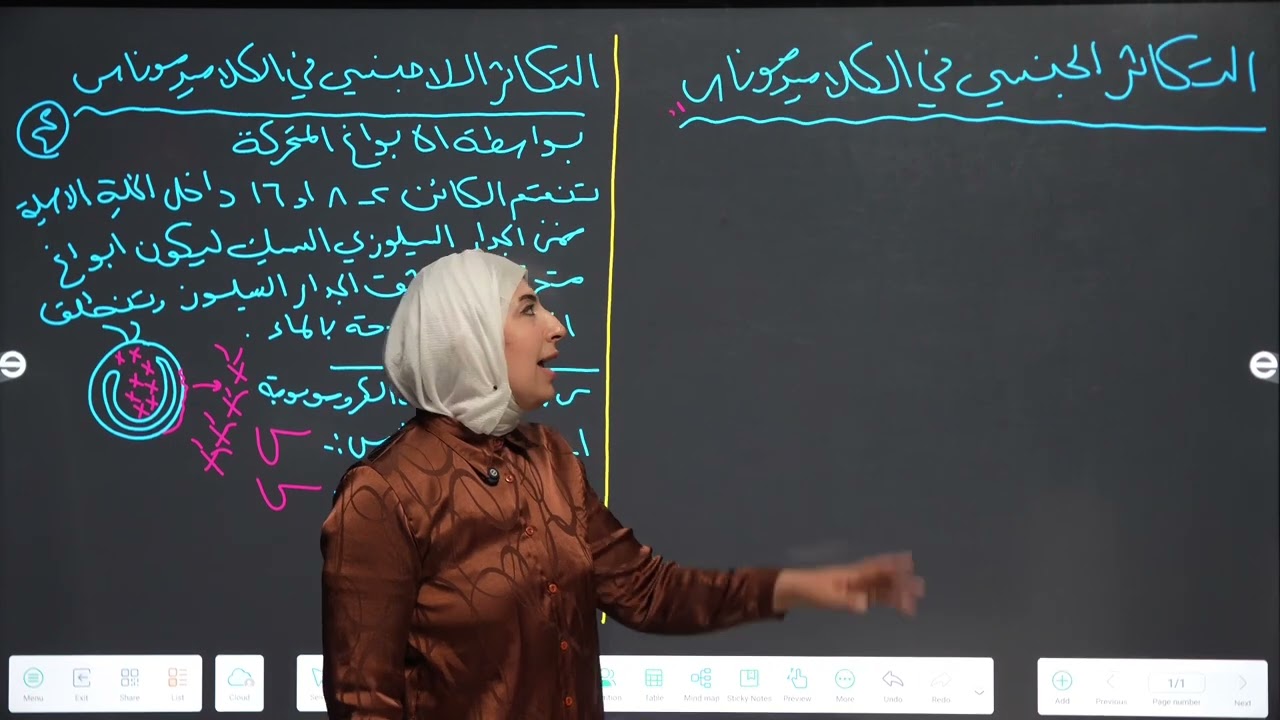 التكاثر الجنسي في الكلاميدموناس
التكاثر اللاجنسي في الكلاميدموناس
م
بواسطة الابواغ المتحركة
تنقسم الكائن 2- 8 او 16 داخل الخلية الاصلية
ضمن الجدار السيلوزي السميك ليكون ابواغ
الجدار السيلوز وتنطلق
بالماء .
الكروموسومية
Menu
Exit
Share
List
Cloud
Table
Mind map
Sticky Notes
Preview
More
Undo
Redo
Add
Previous
1/1
Page number
Next